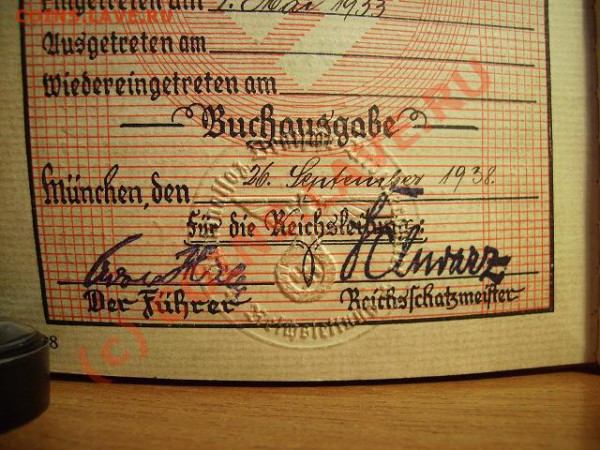 Eingetreten am 1. Mai 1933
COINS.LAVE.RU
Ausgetreten am
Wiedereingetreten am
Buchausgabe
München, den 26. September 1938.
Für die Reichsleitung:
Schwarz
Der Führer Reichsschatzmeister